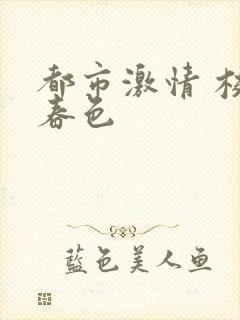 都市激情
春色
藍色美人鱼